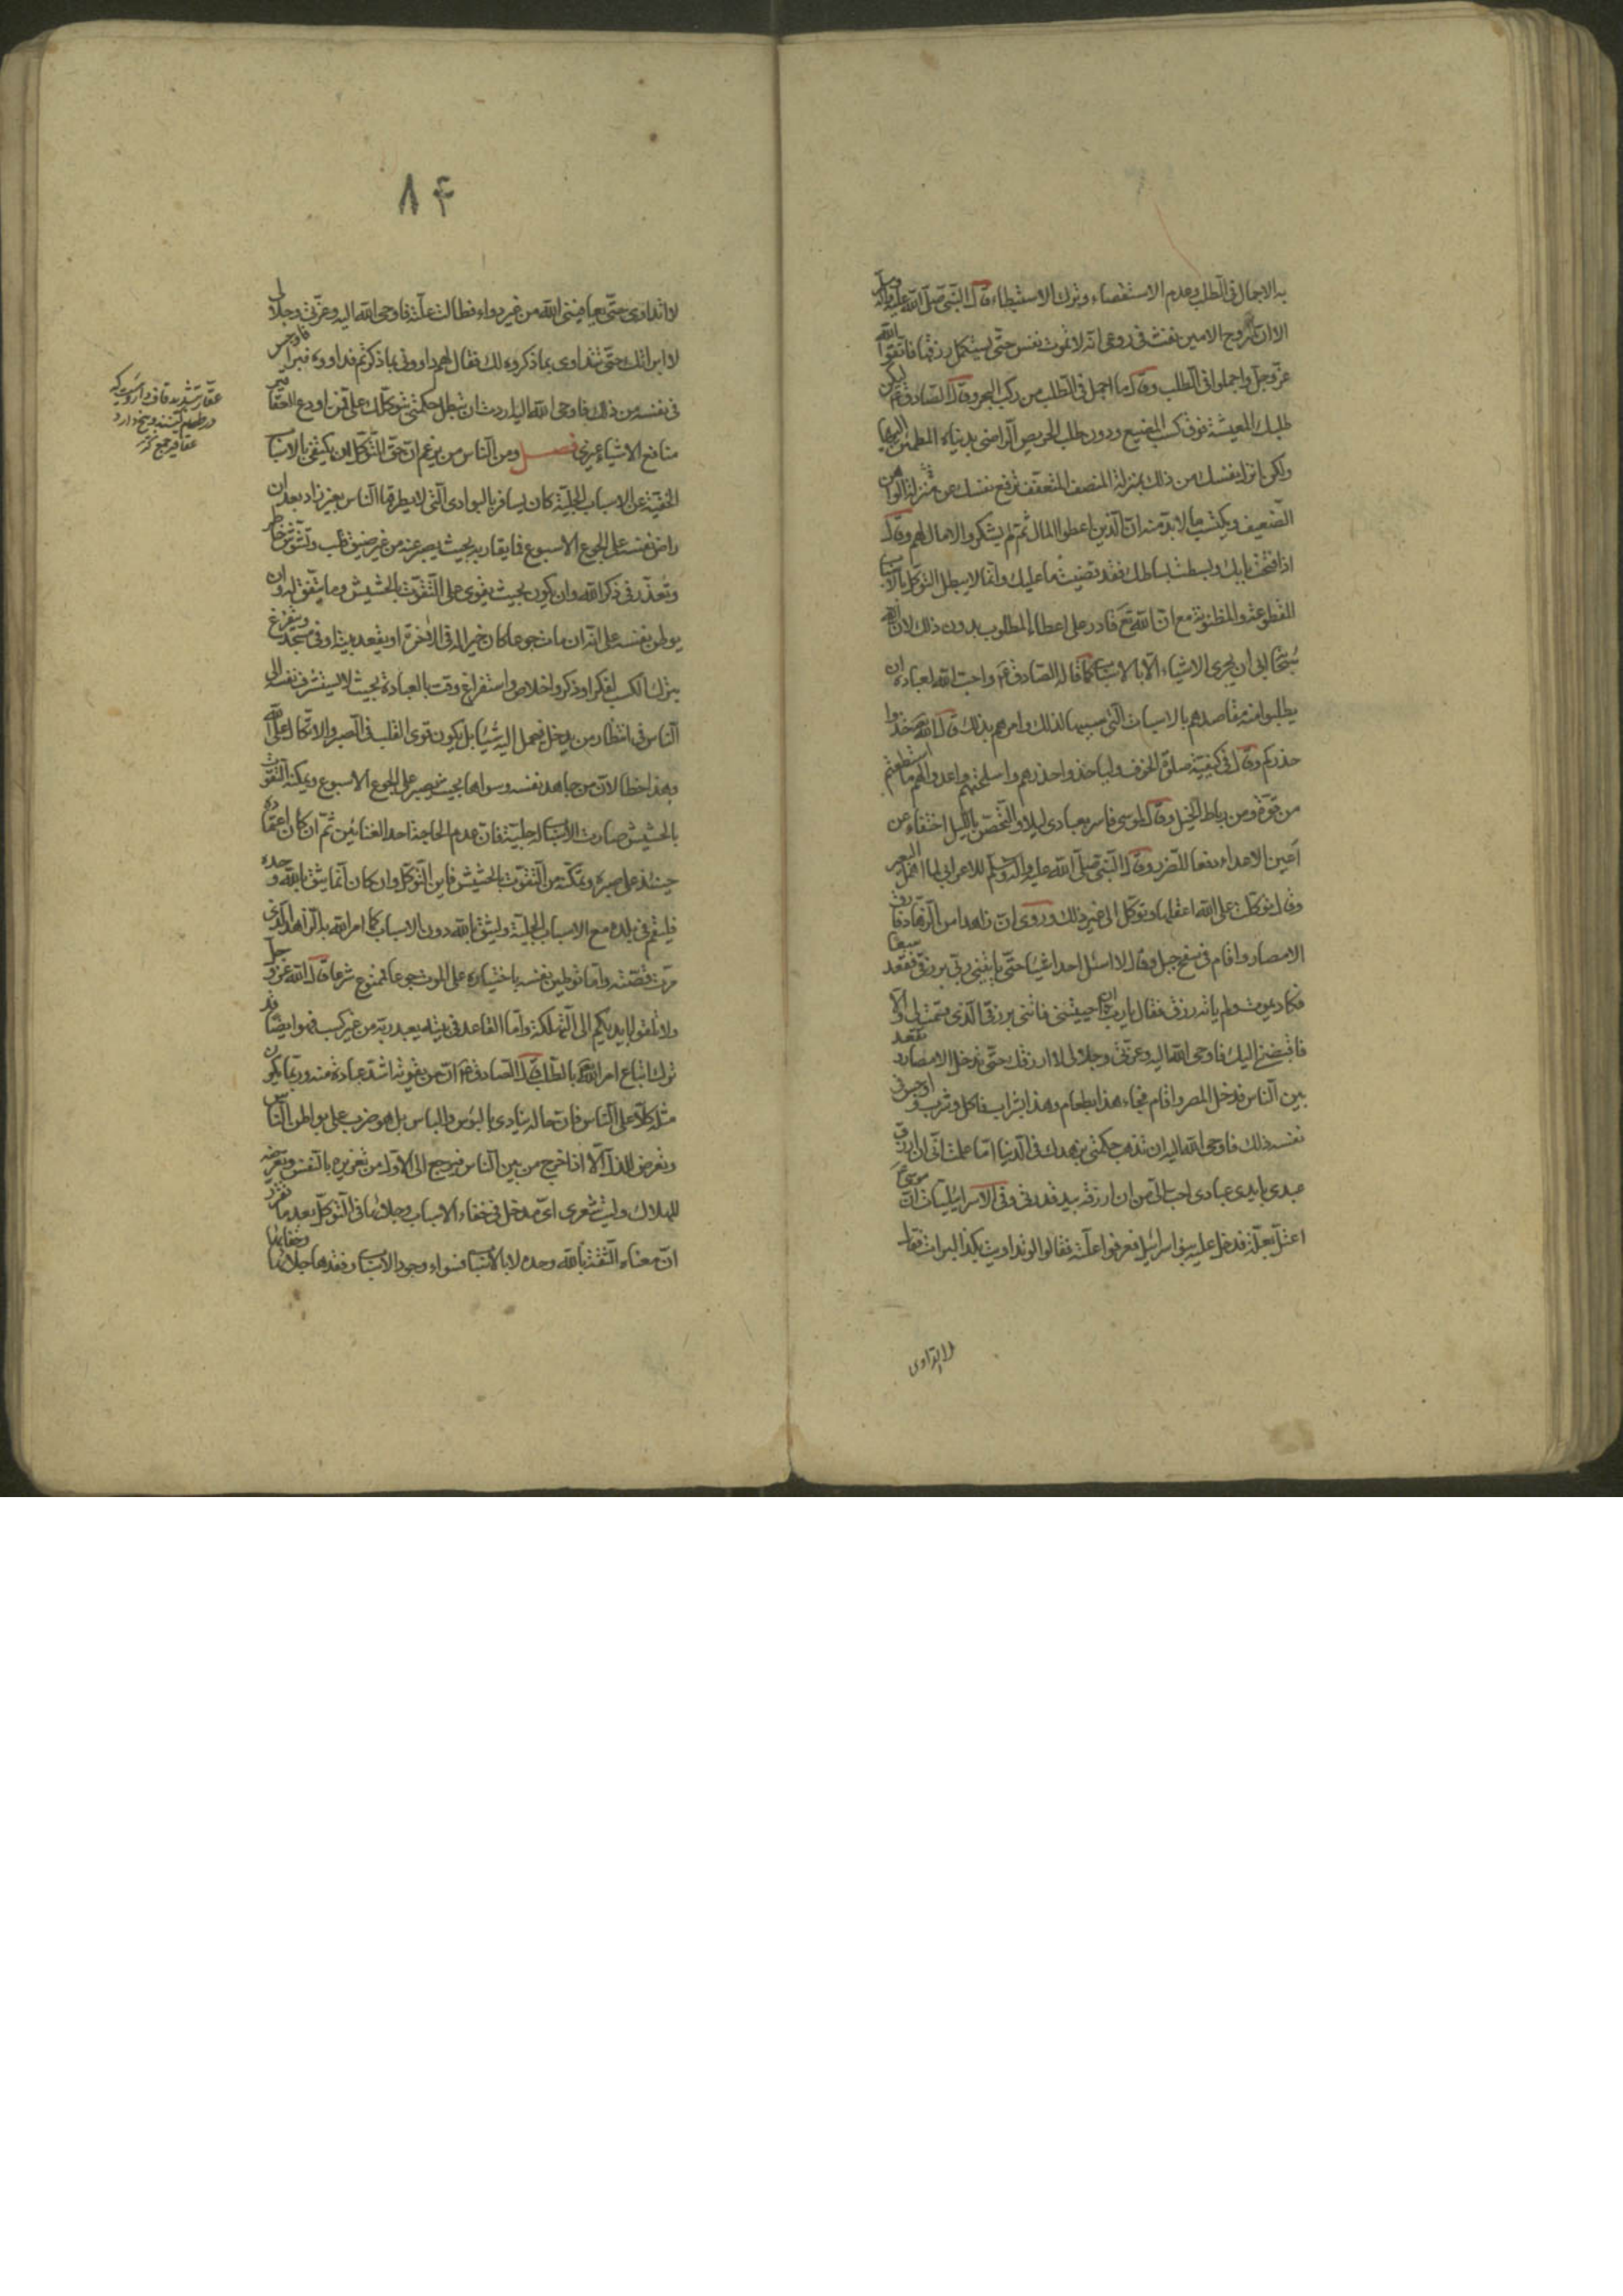 به الاجمال فی الطلب وعدم الاستقصاء وترک الاستبطاء قال النبی صلی الله علیه وآله وسلم
الا ان الروح الامین نفث فی روعی انه لا تموت نفس حتی یستکمل رزقها فاتقوا الله
عز وجل واجملوا فی الطلب وقال ما اجمل فی الطلب من رکب البحر وقال الصادق ع لیکن
طلبک المعیشة فوق کسب المضیع ودون طلب الحریص الراضی بدنیاه المطمئن الیها
ولکن انزل نفسک من ذلک بمنزلة المنصف المتعفف ترفع نفسک عن منزلة الواهن
الضعیف ویکتسب ما لابد منه ان الذین اعطوا المال ثم لم یشکروا لا مال لهم وقال
اذا فتحت بابک وبسطت بساطک فقد قضیت ما علیک وانما لا یبطل التوکل بالاسباب
المقطوعة والمظنونة مع ان الله تع قادر علی اعطاء المطلوب بدون ذلک لان الله
سبحانه ابی ان یجری الاشیاء الا بالاسباب کما قاله الصادق ع واحب الله لعباده ان
یطلبوا منه مقاصدهم بالاسباب التی سببها لذلک وامرهم بذلک قال الله تع خذوا
حذرکم وقال فی کیفیة صلوة الخوف ولیاخذوا حذرهم واسلحتهم واعدوا لهم ما استطعتم
من قوة ومن رباط الخیل وقال لموسی فاسر بعبادی لیلا والتحصن باللیل اختفاء عن
اعین الاعداء دفعا للضرر وقال النبی صلی الله علیه وآله وسلم للاعرابی لما اهمل البعیر
وقال توکلت علی الله اعقلها وتوکل الی غیر ذلک وروی ان زاهدا من الزهاد فارق
الامصار واقام فی سفح جبل وقال لا اسئل احدا شیئا حتی یاتینی ربی برزقی فقعد سبعا
فکاد یموت ولم یاته رزق فقال یا رب ان احییتنی فاتنی برزقی الذی قسمت لی والا
فاقبضنی الیک فاوحی الله الیه وعزتی وجلالی لا ارزقک حتی تدخل الامصار وتقعد
بین الناس فدخل المصر واقام فجاء هذا بطعام وهذا بشراب فاکل وشرب واوجس فی
نفسه ذلک فاوحی الله الیه اردت ان تذهب حکمتی بزهدک فی الدنیا اما علمت انی ان ارزق
عبدی بایدی عبادی احب الی من ان ارزقه بید قدرتی وفی الاسرائیلیات ان موسی ع
اعتل بعلة فدخل علیه بنو اسرائیل فعرفوا علته فقالوا لو تداویت بکذا لبرات فقال
لا اتداوی
۸۴
لا اتداوی حتی یعافینی الله من غیر دواء فطالت علته فاوحی الله الیه وعزتی وجلالی
لا ابراتک حتی تتداوی بما ذکروه لک فقال لهم داوونی بما ذکرتم فداووه فبرا فاوجس
فی نفسه من ذلک فاوحی الله الیه اردت ان تبطل حکمتی بتوکلک علی فمن اودع العقاقیر
منافع الاشیاء غیری فصل ومن الناس من یزعم ان حق التوکل ان یکتفی بالاسباب
الخفیة عن الاسباب الجلیة کان یسافر بالبوادی التی لا یطرقها الناس بغیر زاد بعد ان
راض نفسه علی الجوع الاسبوع فما یقاربه بحیث یصبر عنه من غیر ضیق قلب وتشوش خاطر
وتعذر فی ذکر الله وان یکون بحیث یقوی علی التقوت بالحشیش وما یتفق له وان
یوطن نفسه علی انه ان مات جوعا کان خیرا له فی الاخرة او یقعد بیته او فی مسجد ویتفرغ
بترک الکسب لفکر او ذکر واخلاص واستفراغ وقت بالعبادة بحیث لا یستشرف نفسه الی
الناس فی انتظار من یدخل فیحمل الیه شیئا بل یکون قوی القلب فی الصبر والاتکال علی الله
وهذا خطا لان من جاهد نفسه وسواها بحیث یصبر علی الجوع الاسبوع ویمکنه التقوت
بالحشیش صارت الاسباب له جلیة فان عدم الحاجة احد الغنائین ثم ان کان اعتماده
حینئذ علی صبره وتمکنه من التقوت بالحشیش فاین التوکل وان کان انما یثق بالله وحده
فلیقم فی بلده مع الاسباب الجلیة ولیثق بالله دون الاسباب کما امر الله به الزاهد الذی
مرت قصته واما توطین نفسه باختیاره علی الموت جوعا فممنوع شرعا قال الله عز وجل
ولا تلقوا بایدیکم الی التهلکة واما القاعد فی بیته یعبد ربه من غیر کسب فهو ایضا قد
ترک اتباع امر الله بالطلب قال الصادق ع ان من یقوته اشد عبادة منه وربما یکون
مثله کلا علی الناس فان حاله ینادی بالبؤس والیاس بل هو ضرب علی بواطن الناس
وتعرض للذل الا اذا خرج من بین الناس فیرجع الی الاول من تغریره بالنفس وتعریضه
للهلاک ولیت شعری ای مدخل فی خفاء الاسباب وجلائها فی التوکل بعد ما تقرر
ان معناه الثقة بالله وحده لا بالاسباب فسواء وجود الاسباب وفقدها جلائها وخفائها
عقار بتشدید قاف داروییست که
عقاقیر جمع